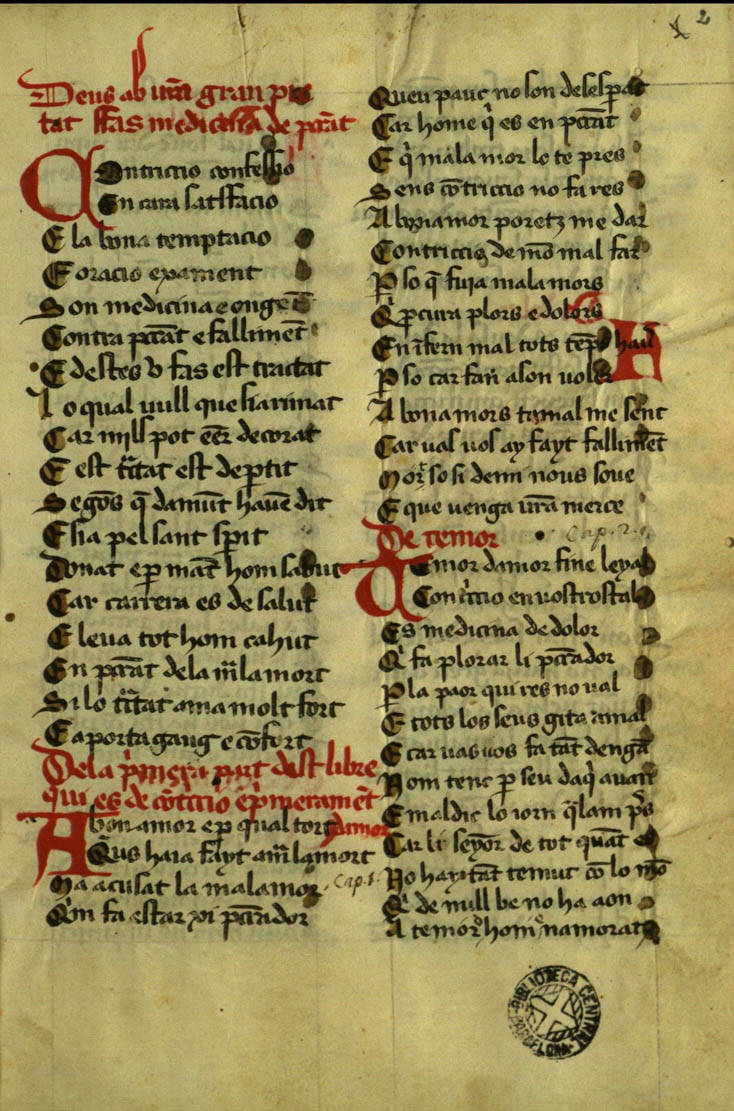 2
Deus ab ur̃a gran pie
tat ffas medicina de pc̃at
Contriccio confessio
En cara satsfacio
E la bona temptacio
E oracio exament
Son medicina e ongẽt
Contra pc̃at e falliment̃
E destes v fas est tractat
Lo qual vull que sia rimat
Car mills pot eẽr decorat
E est tc̃tat est de ptit
Segõs q̃ damũt hauẽ dit
E sia pel sant sp̃it
Donat e p mãt hom sabut
Car carrera es de salut
E leua tot hom cahut
En pc̃at de la mala mort
Si lo tc̃tat ama molt fort
E aporta gaug e cõfort
De la p̃mera part dest libre
qui es de cõtricio e p̃merament̃
damor
A bon amor e p qual tort
Qus haia fayt am la mort
Na acusat la mala mor
Cap. 1.
Qim fa estar xi pc̃ador
Queu pauc no son desesperat
Car home qi es en pc̃at
E qi mala mor lo te pres
Sens cõtriccio no fa res
A bon amor poretz me dar
Contriccio de mõ mal far
P so q̃ fuia mala mors
Q pcura plors e dolors
En ifern mal tots tẽps haurã
P so car fan a son uoler
A bona mors ta mal me sent
Car uas uos ay fayt fallimẽt
E que uenga ur̃a merce
De temor
Cap. 2.
Temor damor fine leyal
Contriccio en uostrostal
Es medicina de dolor
Q fa plorar li pc̃ador
P la paor qui res no ual
E tots los seus gita a mal
E car uas uos fa tãt dengã
Nom tenc p seu daqi auan
E maldic lo iorn q̃lam p̃s
Car li seyor de tot quãt es
No hay tãt temut cõ lo mõ
Q de null be no ha aon
A temor hom namorat
BIBLIOTECA CENTRAL
BARCELONA